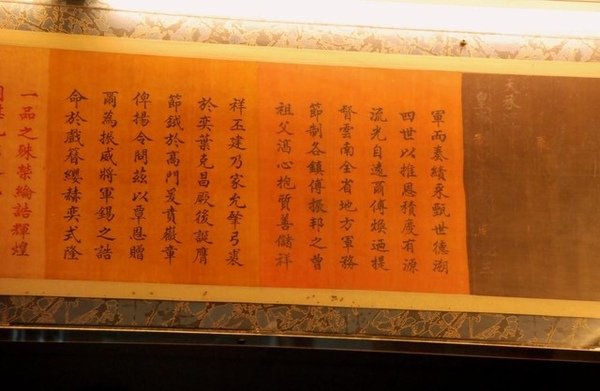 天承
皇
軍而奏績采甄世德溯
四世以推恩積慶有源
流光自遠爾傅煥迺提
督雲南全省地方軍務
節制各鎮傅振邦之曾
祖父心抱質善儲祥
祥丕建乃家允肇弓裘
於奕葉克昌厥後誕膺
節鉞於高門爰賁徽章
俾揚令問茲以覃恩贈
爾為振威將軍錫之誥
命於戲簪纓赫奕式隆
一品之殊榮綸誥輝煌